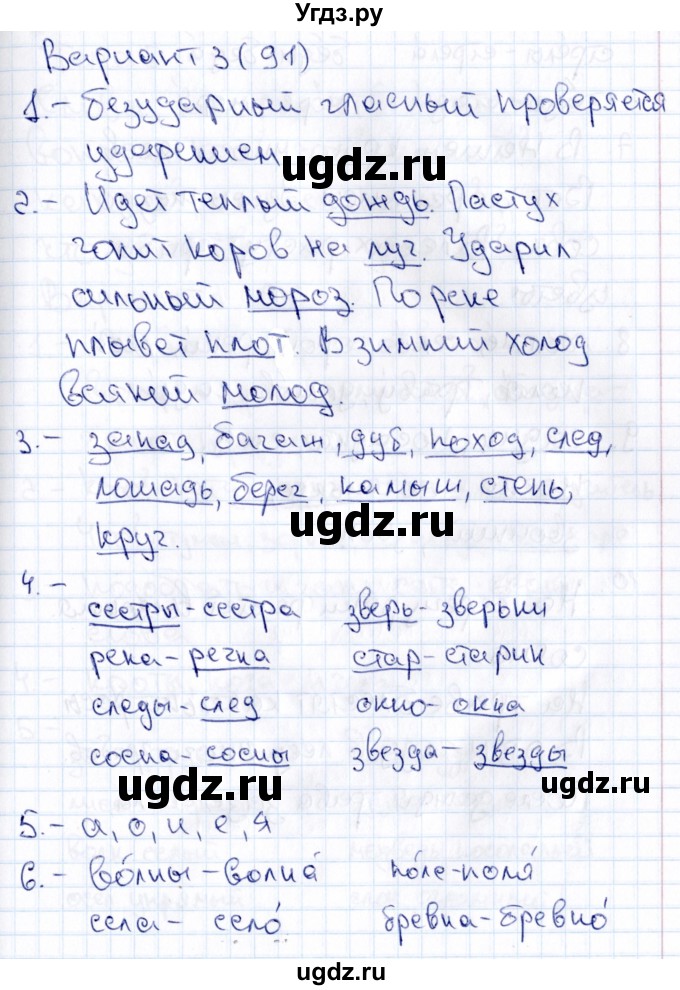 Угдз.ру
Вариант 3 (91)
1.- безударный гласный проверяется
ударением
ugdz.ru
2.- Идет теплый дождь. Пастух
гонит коров на луг. Ударил
сильный мороз. По реке
плывет плот. В зимний холод
всякий молод.
3.- запад, багаж, дуб, поход, след,
лошадь, берег, камыш, степь,
ugdz.ru
круг.
4.-
сестры-сестра зверь-зверьки
река-речка стар-старик
следы-след окно-окна
сосна-сосны звезда-звезды
ugdz.ru
ugdz.ru
5.- а, о, и, е, я
6.- во́лны-волна́ по́ле-поля́
села-село́ бревна-бревно́
ugdz.ru